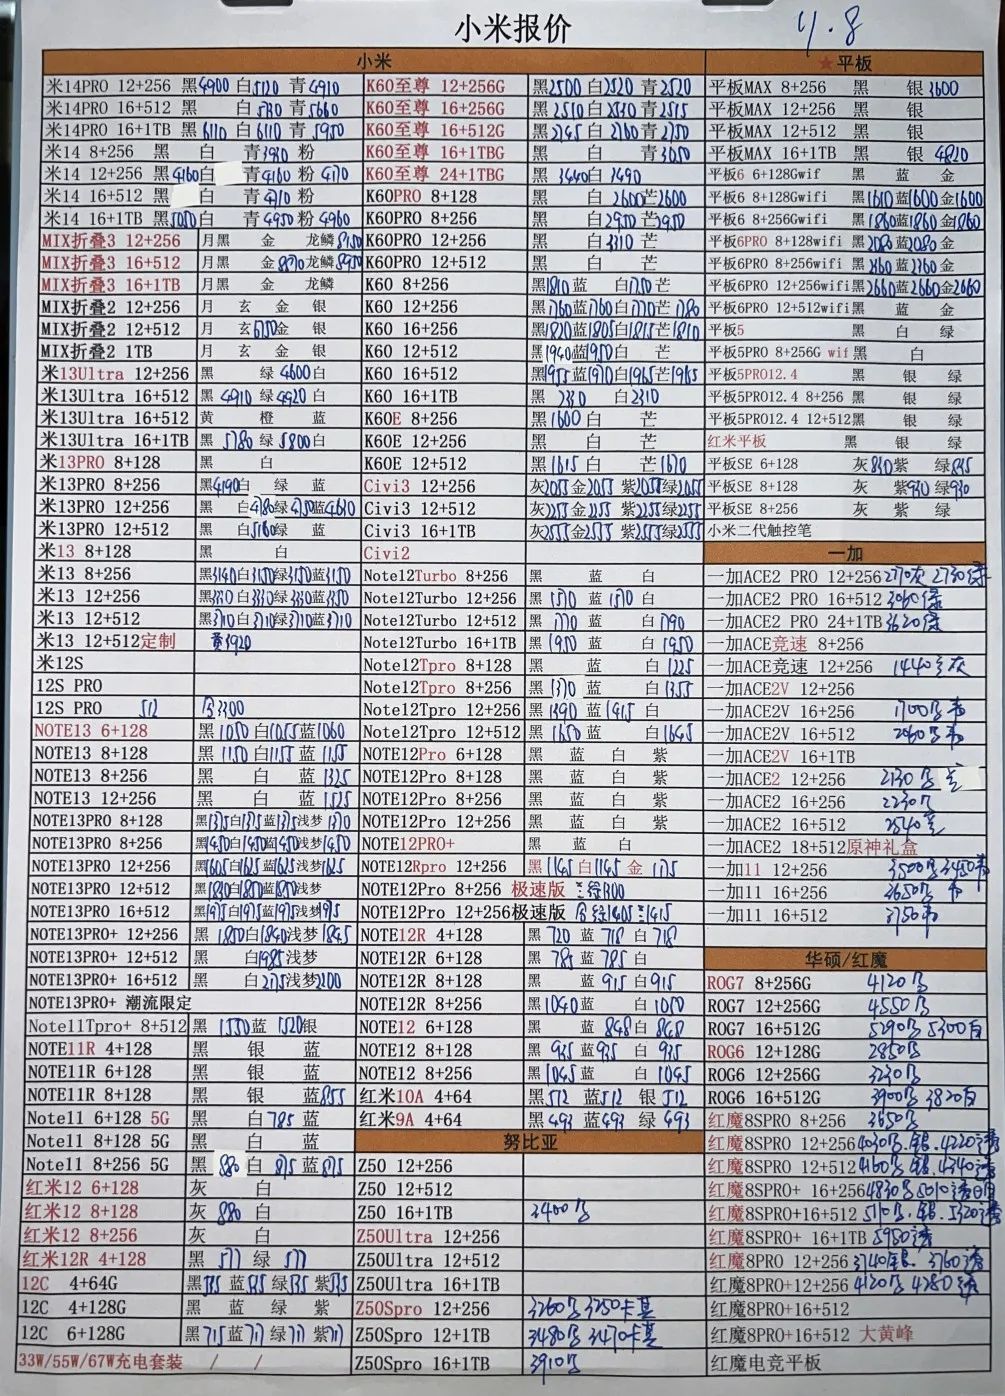 小米报价
4.8
小米
米14PRO 12+256 黑4900 白5120 青4910
米14PRO 16+512 黑 白 青5660
米14PRO 16+1TB 黑6110 白6110 青5950
米14 8+256 黑 白 青3930 粉
米14 12+256 黑4160 白 青4160 粉4170
米14 16+512 黑 白 青 粉
米14 16+1TB 黑5050 白 青4950 粉4960
MIX折叠3 12+256 月黑 金 龙鳞
MIX折叠3 16+512 月黑 金 龙鳞
MIX折叠3 16+1TB 月黑 金 龙鳞
MIX折叠2 12+256 月 玄 金 银
MIX折叠2 12+512 月 玄 金 银
MIX折叠2 1TB 月 玄 金 银
米13Ultra 12+256 黑 绿4600 白
米13Ultra 16+512 黑4910 绿4920 白
米13Ultra 16+512 黄 橙 蓝
米13Ultra 16+1TB 黑5780 绿5800 白
米13PRO 8+128 黑 白
米13PRO 8+256 黑4190 白 绿 蓝
米13PRO 12+256 黑 白 绿 蓝
米13PRO 12+512 黑 白5180 绿 蓝
米13 8+128 黑 白
米13 8+256 黑3140 白3150 绿3150 蓝3150
米13 12+256 黑 白3330 绿3330 蓝3350
米13 12+512 黑3710 白3710 绿3710 蓝3710
米13 12+512定制 黄3920
米12S
12S PRO
12S PRO 512 3300
NOTE13 6+128 黑1050 白1055 蓝1060
NOTE13 8+128 黑1150 白1155 蓝1155
NOTE13 8+256 黑 白 蓝1325
NOTE13 12+256 黑 白 蓝1525
NOTE13PRO 8+128 黑1375 白1375 蓝1375 浅梦1370
NOTE13PRO 8+256 黑1450 白1450 蓝1450 浅梦1450
NOTE13PRO 12+256 黑1605 白1625 蓝1625 浅梦1625
NOTE13PRO 12+512 黑 白1850 蓝1850 浅梦
NOTE13PRO 16+512 黑1975 白1975 蓝1975 浅梦
NOTE13PRO+ 12+256 黑1850 白1840 浅梦1845
NOTE13PRO+ 12+512 黑 白1985 浅梦
NOTE13PRO+ 16+512 黑 白2175 浅梦2200
NOTE13PRO+ 潮流限定
Note11Tpro+ 8+512 黑1550 蓝1520 银
NOTE11R 4+128 黑 银 蓝
NOTE11R 6+128 黑 银 蓝
NOTE11R 8+128 黑 银 蓝855
Note11 6+128 5G 黑 白785 蓝
Note11 8+128 5G 黑 白 蓝
Note11 8+256 5G 黑880 白875 蓝875
红米12 6+128 灰 白
红米12 8+128 灰880 白
红米12 8+256 灰 白
红米12R 4+128 黑577 绿577
12C 4+64G 黑 蓝 绿 紫
12C 4+128G 黑 蓝 绿 紫
12C 6+128G 黑715 蓝711 绿711 紫711
33W/55W/67W充电套装 / /
K60至尊 12+256G 黑2500 白2520 青2520
K60至尊 16+256G 黑2510 白2530 青2515
K60至尊 16+512G 黑2745 白2760 青2750
K60至尊 16+1TBG 黑 白 青3050
K60至尊 24+1TBG 黑3440 白3490
K60PRO 8+128 黑 白2600 芒2600
K60PRO 8+256 黑 白2950 芒2950
K60PRO 12+256 黑 白3310 芒
K60PRO 12+512 黑 白 芒
K60 8+256 黑1810 蓝 白1750 芒
K60 12+256 黑1760 蓝1760 白1770 芒1780
K60 16+256 黑1820 蓝1805 白1815 芒1810
K60 12+512 黑1940 蓝1950 白 芒
K60 16+512 黑1955 蓝1970 白1965 芒1965
K60 16+1TB 黑2330 白2310
K60E 8+256 黑1600 白 芒
K60E 12+256 黑 白 芒
K60E 12+512 黑1615 白 芒1670
Civi3 12+256 灰2055 金2055 紫2055 绿2055
Civi3 12+512 灰2255 金2255 紫2255 绿2255
Civi3 16+1TB 灰2555 金2555 紫2555 绿2555
Civi2
Note12Turbo 8+256 黑 蓝 白
Note12Turbo 12+256 黑1570 蓝1570 白
Note12Turbo 12+512 黑1770 蓝 白1790
Note12Turbo 16+1TB 黑1950 蓝 白1950
Note12Tpro 8+128 黑 蓝 白1225
Note12Tpro 8+256 黑1370 蓝 白1355
Note12Tpro 12+256 黑1390 蓝1415 白
Note12Tpro 12+512 黑1650 蓝 白1645
NOTE12Pro 6+128 黑 蓝 白 紫
NOTE12Pro 8+128 黑 蓝 白 紫
NOTE12Pro 8+256 黑 蓝 白 紫
NOTE12Pro 12+256 黑 蓝 白 紫
NOTE12PRO+ 黑 蓝 白
NOTE12Rpro 12+256 黑1145 白1145 金1175
NOTE12Pro 8+256 极速版
NOTE12Pro 12+256极速版 绿1405 1415
NOTE12R 4+128 黑720 蓝718 白718
NOTE12R 6+128 黑785 蓝785 白
NOTE12R 8+128 黑 蓝915 白915
NOTE12R 8+256 黑1040 蓝 白1050
NOTE12 6+128 黑 蓝848 白848
NOTE12 8+128 黑935 蓝935 白935
NOTE12 8+256 黑1045 蓝 白1045
红米10A 4+64 黑512 蓝512 银512
红米9A 4+64 黑493 蓝493 绿493
努比亚
Z50 12+256
Z50 12+512
Z50 16+1TB 3400
Z50Ultra 12+256
Z50Ultra 16+1TB
Z50Spro 12+256 3260 3250
Z50Spro 12+1TB 3480 3470
Z50Spro 16+1TB 3910
★平板
平板MAX 8+256 黑 银3600
平板MAX 12+256 黑 银
平板MAX 12+512 黑 银
平板MAX 16+1TB 黑 银4820
平板6 6+128Gwif 黑 蓝 金
平板6 8+128Gwifi 黑1610 蓝1600 金1600
平板6 8+256Gwifi 黑1860 蓝1860 金1860
平板6PRO 8+128wifi 黑2080 蓝2080 金
平板6PRO 8+256wifi 黑2360 蓝2360 金
平板6PRO 12+256wifi 黑2660 蓝2660 金2660
平板6PRO 12+512wifi 黑 蓝 金
平板5 黑 白 绿
平板5PRO 8+256G wif 黑 白
平板5PRO12.4 黑 银 绿
平板5PRO12.4 8+256 黑 银 绿
平板5PRO12.4 12+512 黑 银 绿
红米平板 黑 银 绿
平板SE 6+128 灰830 紫 绿835
平板SE 8+128 灰 紫930 绿930
平板SE 8+256 灰 紫 绿
小米二代触控笔
一加
一加ACE2 PRO 12+256 2770灰 2730绿
一加ACE2 PRO 16+512 3060绿
一加ACE2 PRO 24+1TB 3620绿
一加ACE竞速 8+256
一加ACE竞速 12+256 1440 灰
一加ACE2V 12+256
一加ACE2V 16+256 1700
一加ACE2V 16+512 2060
一加ACE2V 16+1TB
一加ACE2 12+256 2130
一加ACE2 16+256 2230
一加ACE2 16+512 2540
一加ACE2 18+512原神礼盒
一加11 12+256 3500 3450
一加11 16+256 3650
一加11 16+512 3750
华硕/红魔
ROG7 8+256G 4120
ROG7 12+256G 4550
ROG7 16+512G 5290 5300白
ROG6 12+128G 2850
ROG6 12+256G 3230
ROG6 16+512G 3900 3820白
红魔8SPRO 8+256 3650
红魔8SPRO 12+256 4030 银.4220透
红魔8SPRO 12+512 4160 银.4340透
红魔8SPRO+ 16+256 4830 5010透
红魔8SPRO+16+512 5110 银.5320透
红魔8SPRO+ 16+1TB 5950透
红魔8PRO 12+256 3740银. 3760透
红魔8PRO+12+256 4120 4280透
红魔8PRO+16+512
红魔8PRO+16+512 大黄峰
红魔电竞平板